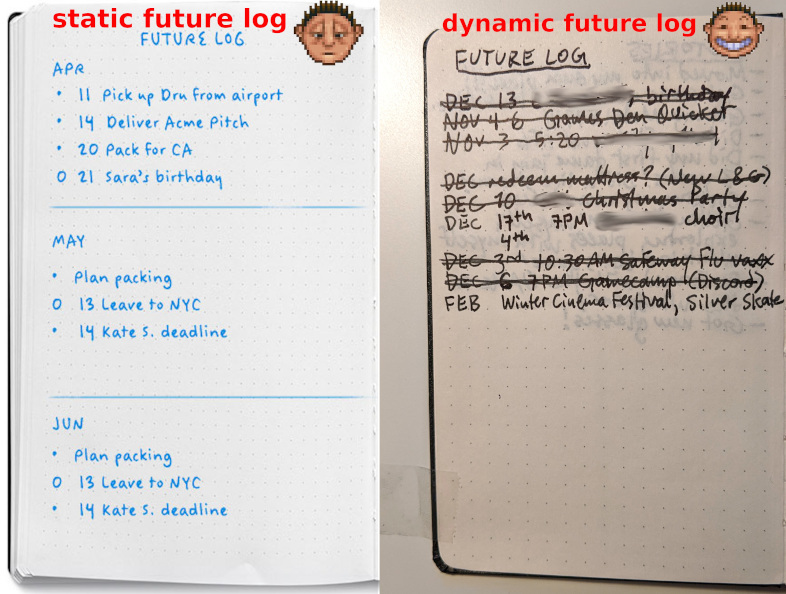 static future log
FUTURE LOG
APR
• 11 Pick up Dru from airport
• 14 Deliver Acme Pitch
• 20 Pack for CA
O 21 Sara's birthday
MAY
• Plan packing
O 13 Leave to NYC
• 14 Kate S. deadline
JUN
• Plan packing
O 13 Leave to NYC
• 14 Kate S. deadline
dynamic future log
FUTURE LOG
DEC 13 birthday
NOV 4-6 Games Den Quicket
NOV 3 5:20
DEC redeem mattress? (New L&G)
DEC 10 Christmas Party
DEC 17th 7PM choir
4th
DEC 3rd 10:30 AM Safeway Flu vaxx
DEC 6 7PM Gamecamp (Discord)
FEB Winter Cinema Festival, Silver Skate
- Got new glasses!